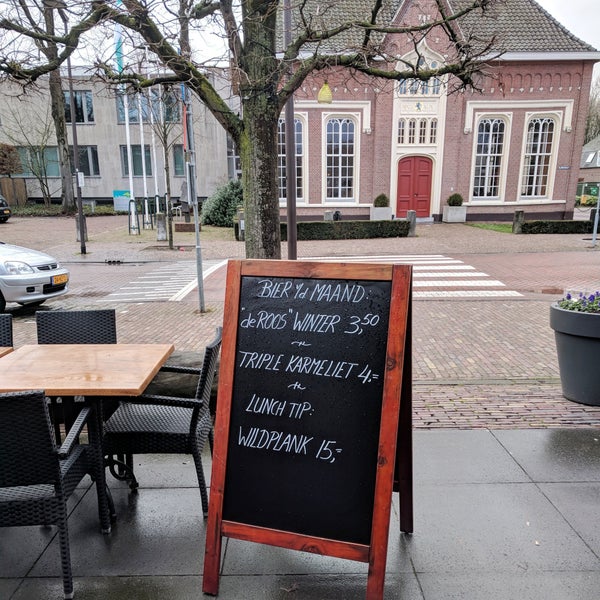 BIER v/d MAAND
"de ROOS" WINTER 3,50
~
TRIPLE KARMELIET 4,=
~
LUNCH TIP:
WILDPLANK 15,=